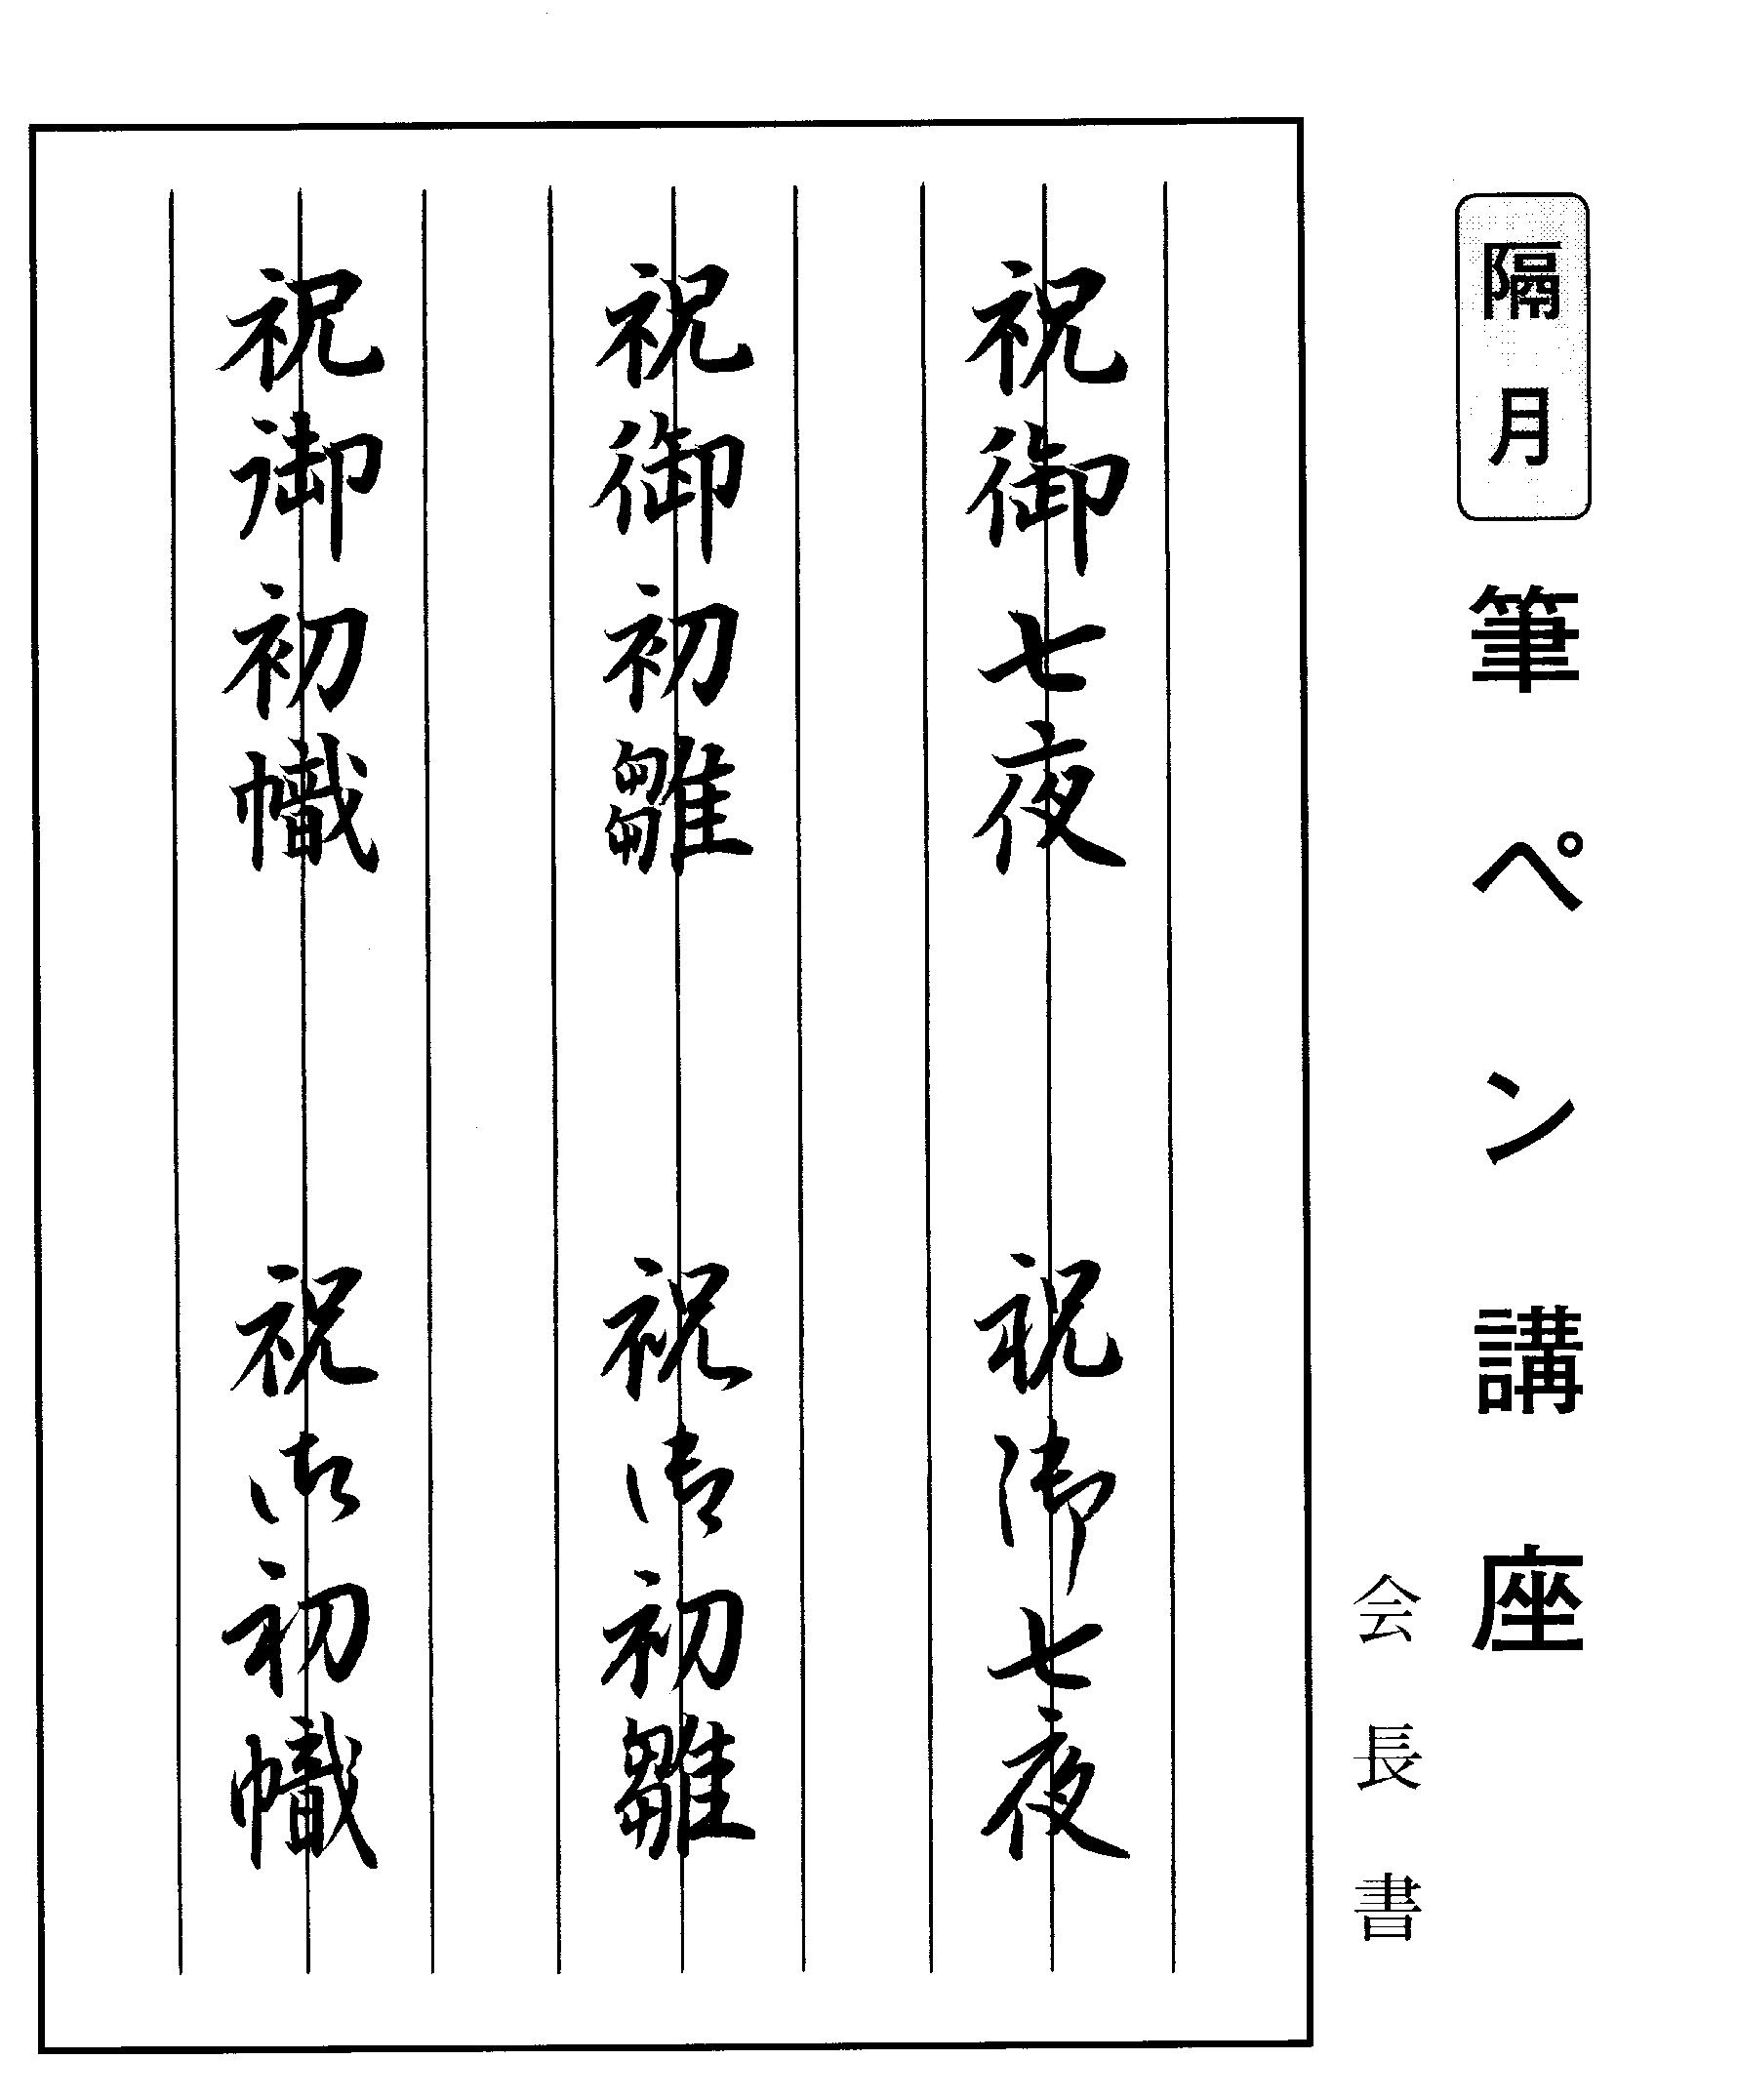 隔月
筆ペン講座
会長書
祝御七夜　祝御七夜
祝御初雛　祝御初雛
祝御初幟　祝御初幟